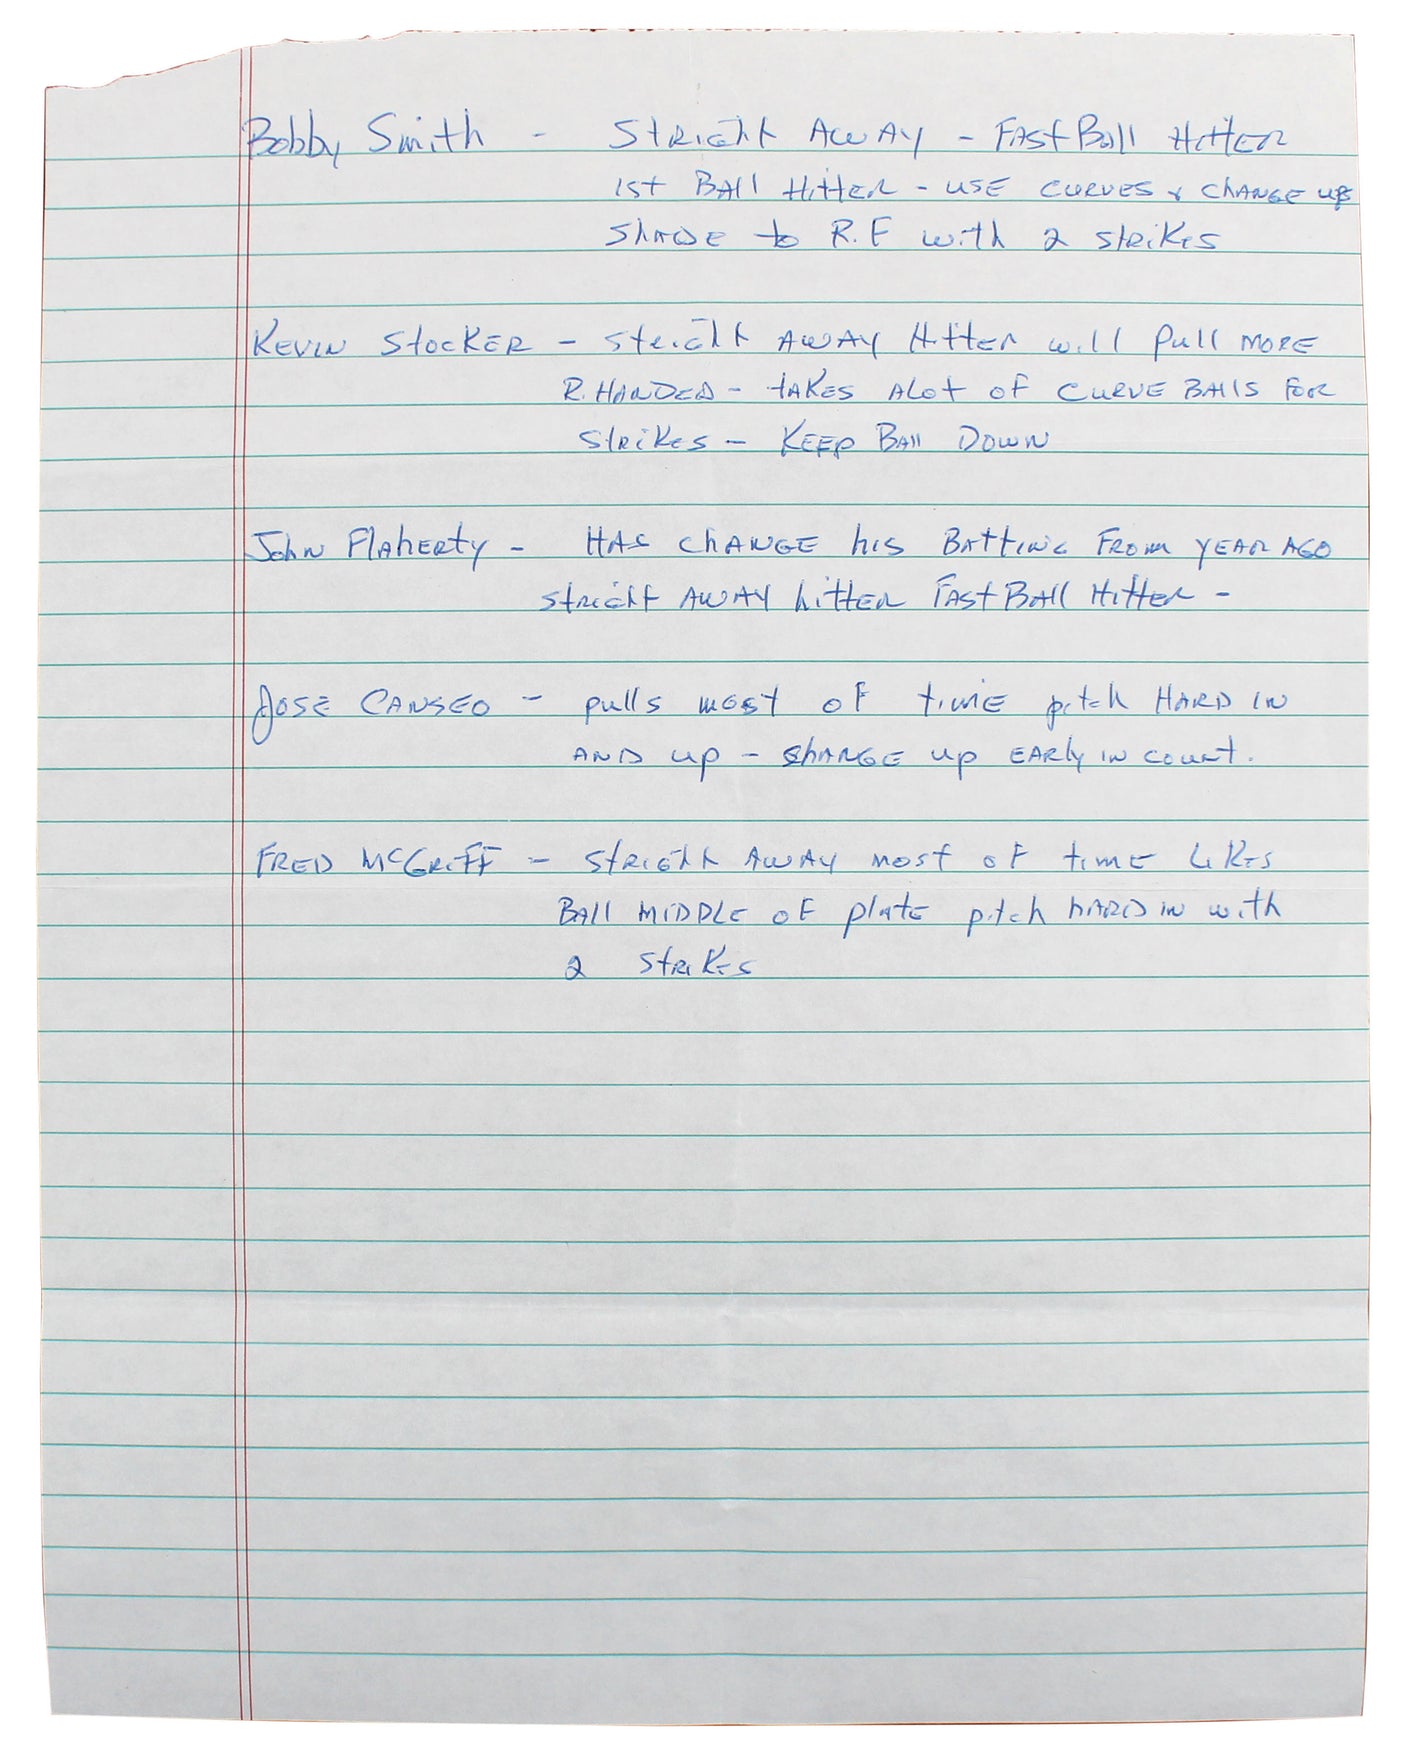 Bobby Smith - Stright Away - Fast Ball Hitter
1st Ball Hitter - use curves & change ups
Shade to R.F with 2 strikes
Kevin Stocker - Stright Away Hitter will pull more
R. Handed - takes alot of curve balls for
strikes - Keep Ball Down
John Flaherty - Has change his Batting from year ago
stright away hitter Fast Ball Hitter -
Jose Canseo - pulls most of time pitch Hard in
and up - change up early in count.
Fred McGriff - stright away most of time likes
Ball middle of plate pitch hard in with
2 strikes